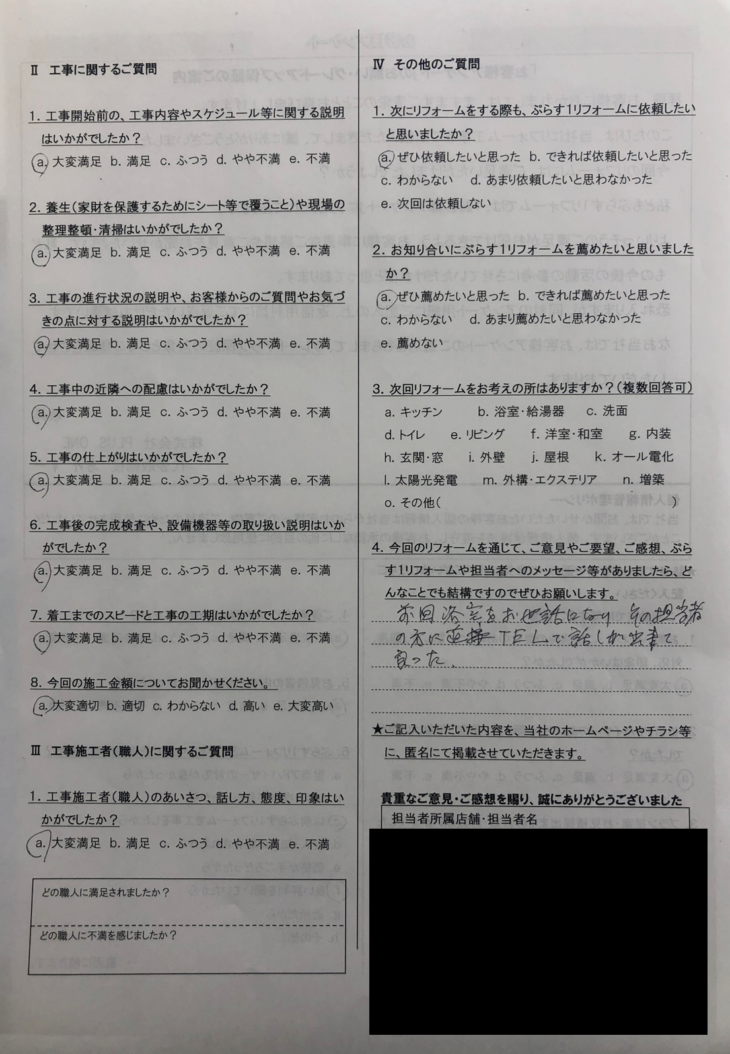 Ⅱ 工事に関するご質問
1. 工事開始前の、工事内容やスケジュール等に関する説明
はいかがでしたか?
a. 大変満足 b. 満足 c. ふつう d. やや不満 e. 不満
2. 養生(家財を保護するためにシート等で覆うこと)や現場の
整理整頓・清掃はいかがでしたか?
a. 大変満足 b. 満足 c. ふつう d. やや不満 e. 不満
3. 工事の進行状況の説明や、お客様からのご質問やお気づ
きの点に対する説明はいかがでしたか?
a. 大変満足 b. 満足 c. ふつう d. やや不満 e. 不満
4. 工事中の近隣への配慮はいかがでしたか?
a. 大変満足 b. 満足 c. ふつう d. やや不満 e. 不満
5. 工事の仕上がりはいかがでしたか?
a. 大変満足 b. 満足 c. ふつう d. やや不満 e. 不満
6. 工事後の完成検査や、設備機器等の取り扱い説明はいか
がでしたか?
a. 大変満足 b. 満足 c. ふつう d. やや不満 e. 不満
7. 着工までのスピードと工事の工期はいかがでしたか?
a. 大変満足 b. 満足 c. ふつう d. やや不満 e. 不満
8. 今回の施工金額についてお聞かせください。
a. 大変適切 b. 適切 c. わからない d. 高い e. 大変高い
Ⅲ 工事施工者(職人)に関するご質問
1. 工事施工者(職人)のあいさつ、話し方、態度、印象はい
かがでしたか?
a. 大変満足 b. 満足 c. ふつう d. やや不満 e. 不満
どの職人に満足されましたか?
どの職人に不満を感じましたか?
Ⅳ その他のご質問
1. 次にリフォームをする際も、ぷらす1リフォームに依頼したい
と思いましたか?
a. ぜひ依頼したいと思った b. できれば依頼したいと思った
c. わからない d. あまり依頼したいと思わなかった
e. 次回は依頼しない
2. お知り合いにぷらす1リフォームを薦めたいと思いました
か?
a. ぜひ薦めたいと思った b. できれば薦めたいと思った
c. わからない d. あまり薦めたいと思わなかった
e. 薦めない
3. 次回リフォームをお考えの所はありますか?(複数回答可)
a. キッチン b. 浴室・給湯器 c. 洗面
d. トイレ e. リビング f. 洋室・和室 g. 内装
h. 玄関・窓 i. 外壁 j. 屋根 k. オール電化
l. 太陽光発電 m. 外構・エクステリア n. 増築
o. その他( )
4. 今回のリフォームを通じて、ご意見やご要望、ご感想、ぷら
す1リフォームや担当者へのメッセージ等がありましたら、ど
んなことでも結構ですのでぜひお願いします。
前回浴室をお世話になり その担当者
の方に直接TELで話しが出来て
良った.
★ご記入いただいた内容を、当社のホームページやチラシ等
に、匿名にて掲載させていただきます。
貴重なご意見・ご感想を賜り、誠にありがとうございました
担当者所属店舗・担当者名